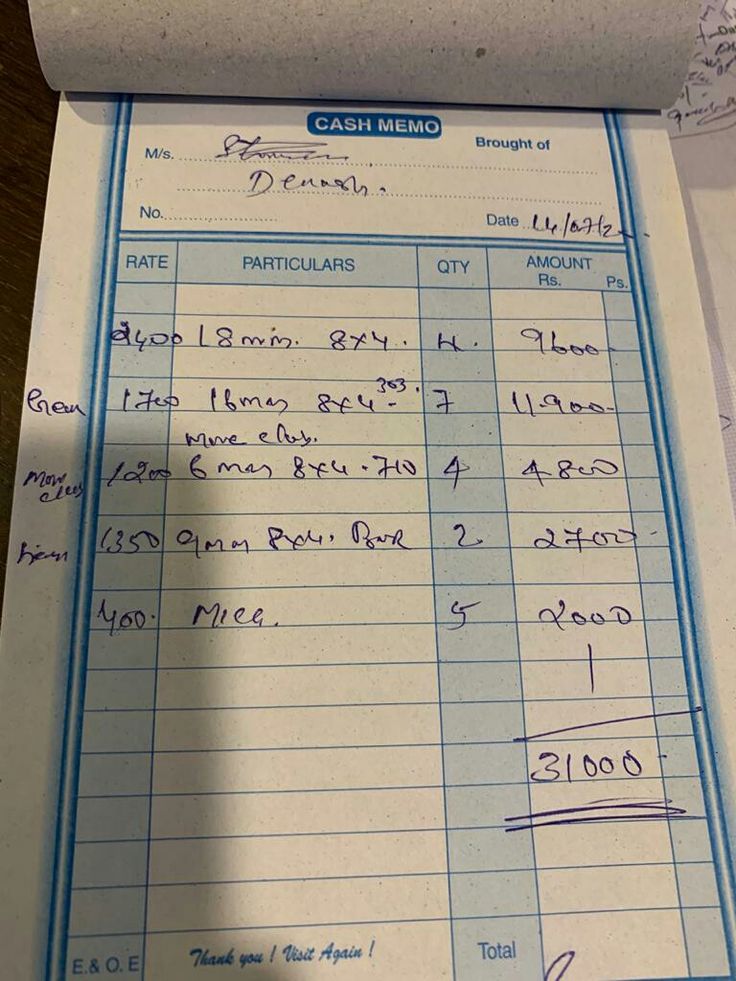 CASH MEMO
M/s. Brought of
Denash.
No. Date 14/07/2
RATE PARTICULARS QTY AMOUNT
Rs. Ps.
2400 18 mm. 8x4. 4. 9600
1700 16mm 8x4 303. 7 11.900
1200 6 mm 8x4.710 4 4800
1350 9mm 8x4. 2 2700
400. Mica. 5 2000
31000
E. & O. E Thank you ! Visit Again ! Total